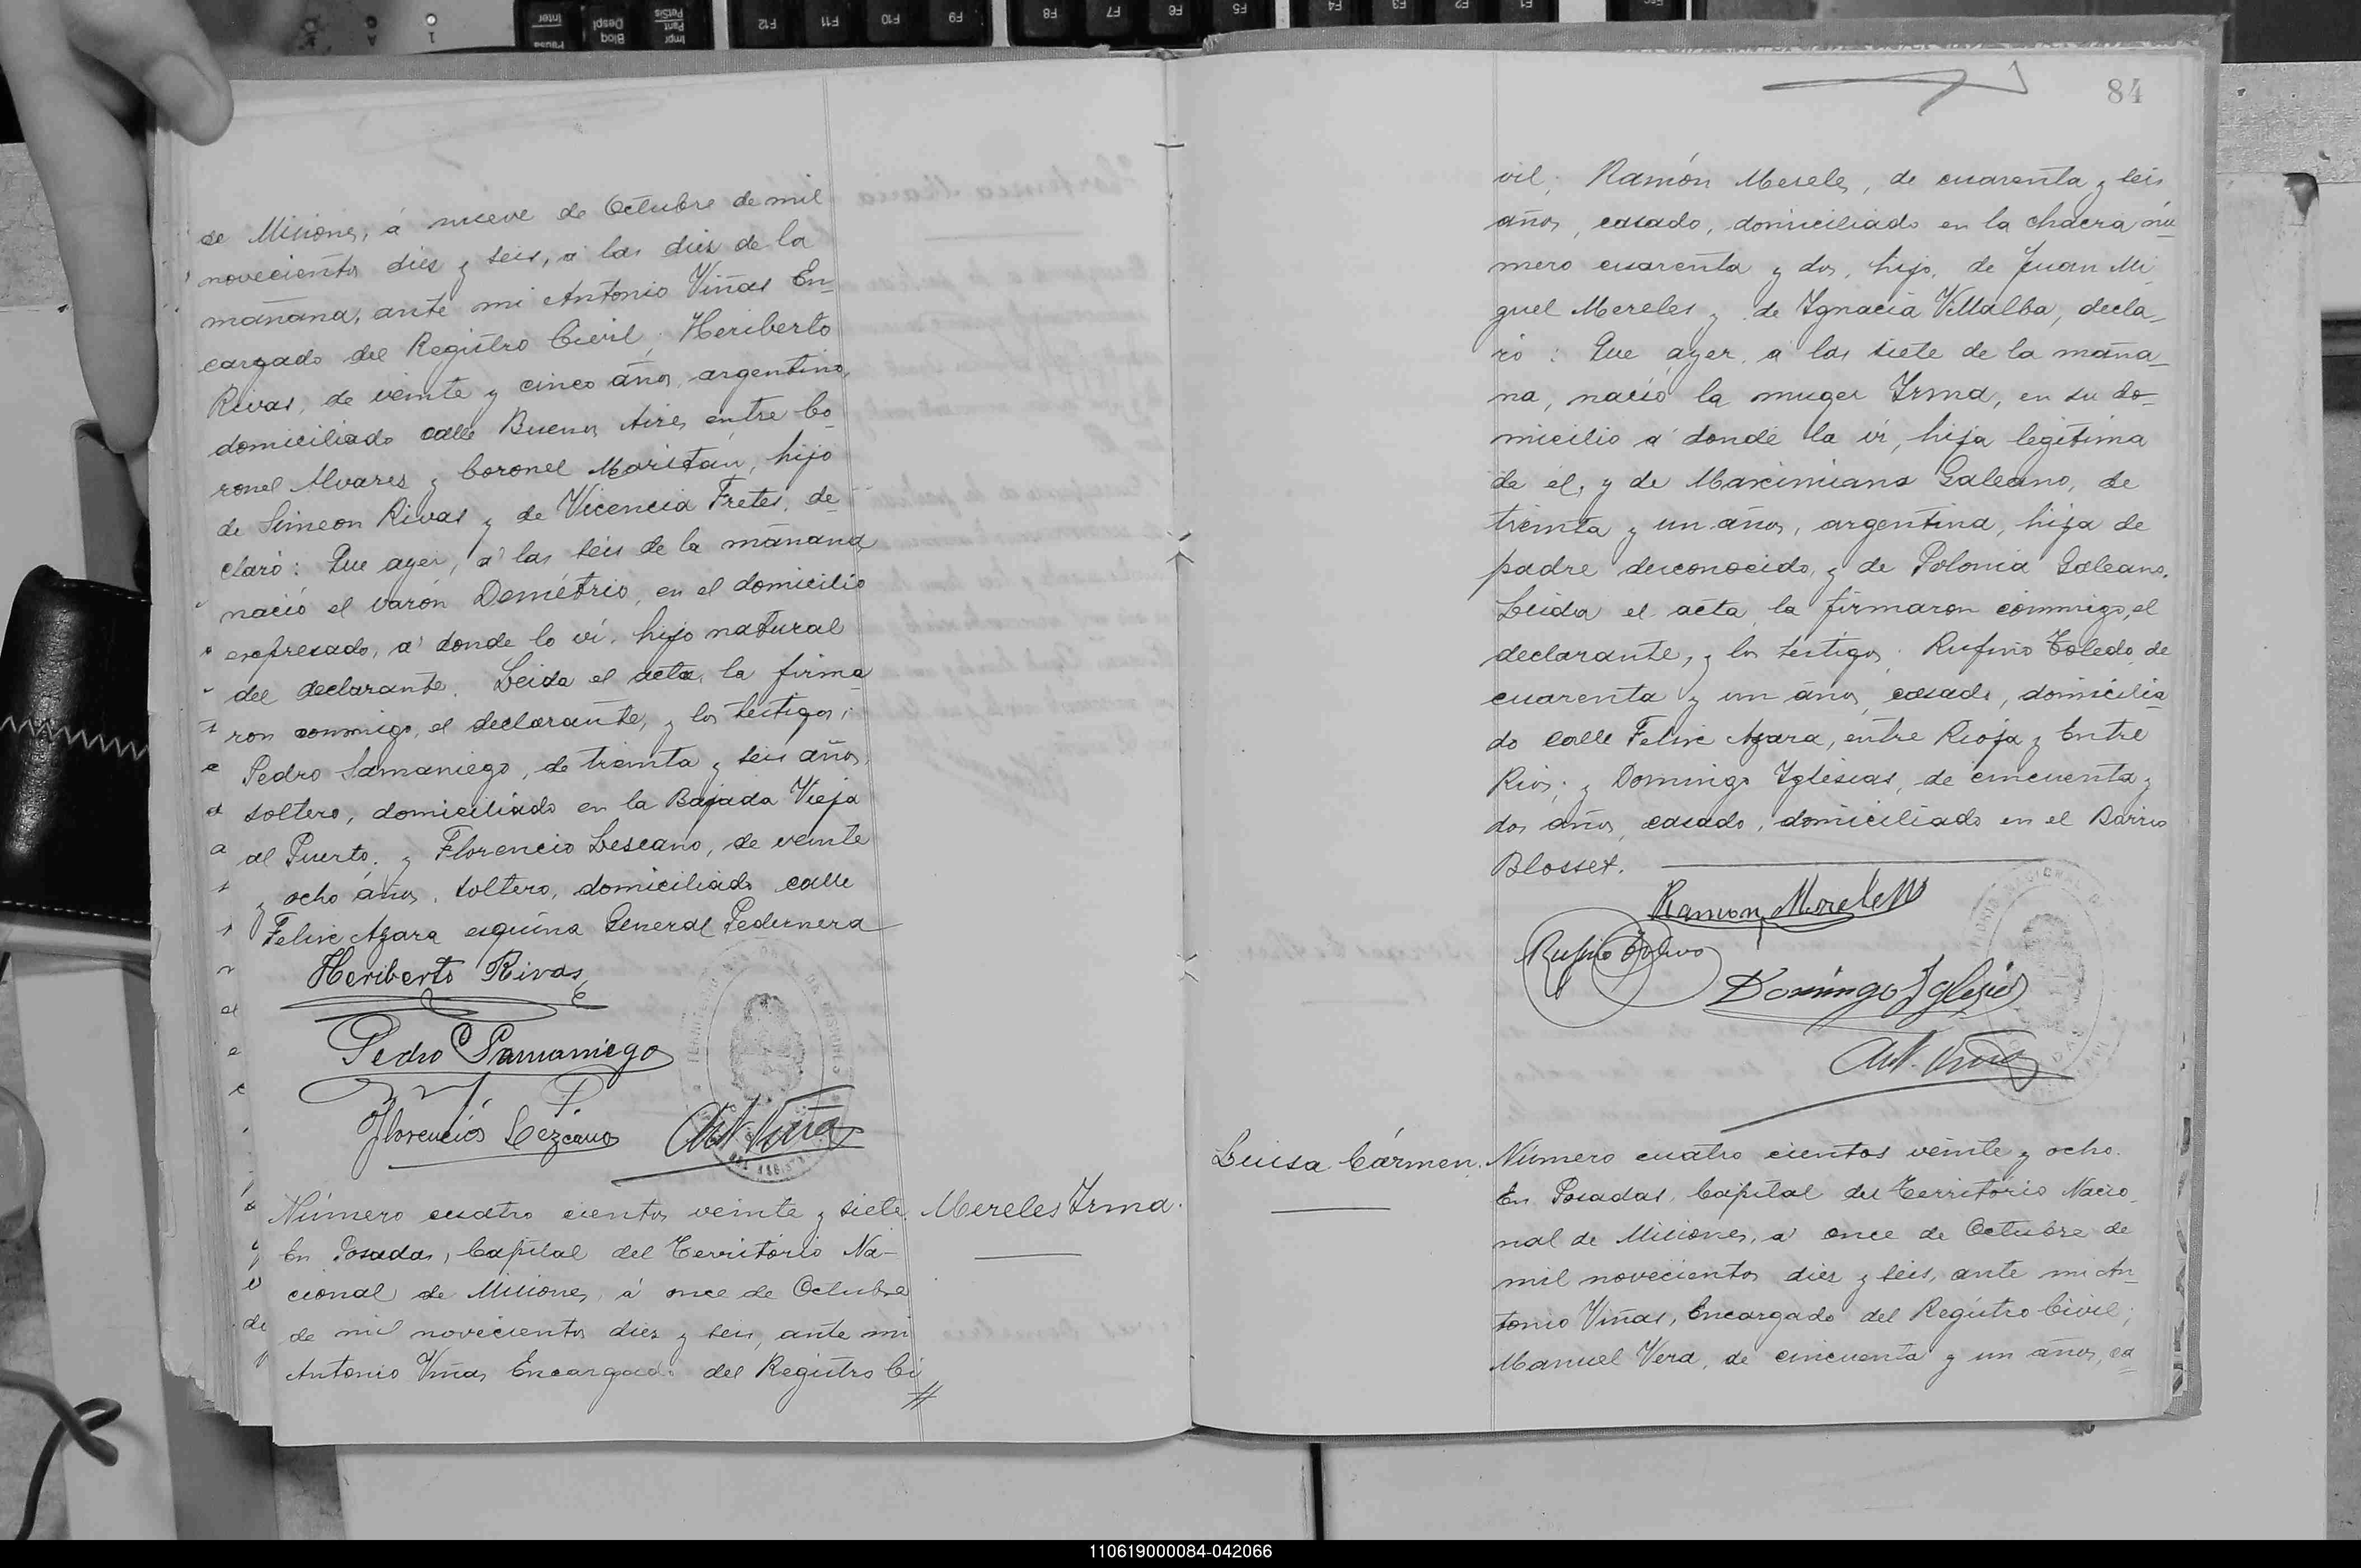 de Misiones, á nueve de Octubre de mil
novecientos diés y seis, á las diez de la
mañana, ante mi Antonio Viñas En-
cargado del Registro Civil; Heriberto
Rivas, de veinte y cinco años, argentino,
domiciliado calle Buenos Aires entre Co-
ronel Alvares y Coronel Maristán, hijo
de Simeon Rivas y de Vicencia Fretes, de-
claró: Que ayer, á las seis de la mañana
nació el varón Demétrio, en el domicilio
expresado, á donde lo ví, hijo natural
del declarante. Leida el acta, la firma
ron conmigo, el declarante, y los testigos;
Pedro Samaniego, de treinta y seis años,
soltero, domiciliado en la Bajada Vieja
al Puerto, y Florencio Lescano, de veinte
y ocho años, soltero, domiciliado calle
Felix Azara esquina General Pedernera
Heriberto Rivas
Pedro Samaniego
Florencio Lezcano Ant. Viñas
Número cuatro cientos veinte y siete. Mereles Irma.
En Posadas, Capital del Territorio Na-
cional de Misiones, á once de Octubre
de mil novecientos diez y seis, ante mi
Antonio Viñas Encargado del Registro Ci
84
vil; Ramón Mereles, de cuarenta y seis
años, casado, domiciliado en la chacra nú-
mero cuarenta y dos, hijo, de Juan Mi
guel Mereles y de Ignacia Villalba, decla-
ró: Que ayer, á las siete de la maña-
na, nació la muger Irma, en su do-
micilio á donde la ví, hija legítima
de él, y de Maximiana Galeano, de
treinta y un años, argentina, hija de
padre desconocido, y de Polonia Galeano.
Leida el acta, la firmaron conmigo, el
declarante, y los testigos; Rufino Toledo, de
cuarenta y un años, casado, domicilia-
do calle Felix Azara, entre Rioja y Entre
Rios; y Domingo Iglesias, de cincuenta y
dos años, casado, domiciliado en el Barrio
Blosset.
Ramon Mereles
Rufino Toledo
Domingo Iglesias
Ant. Viñas
Luisa Cármen. Número cuatro cientos veinte y ocho.
En Posadas, Capital del Territorio Nacio-
nal de Misiones, á once de Octubre de
mil novecientos diez y seis, ante mi An-
tonio Viñas, Encargado del Registro Civil;
Manuel Vera, de cincuenta y un años, ca-
110619000084-042066